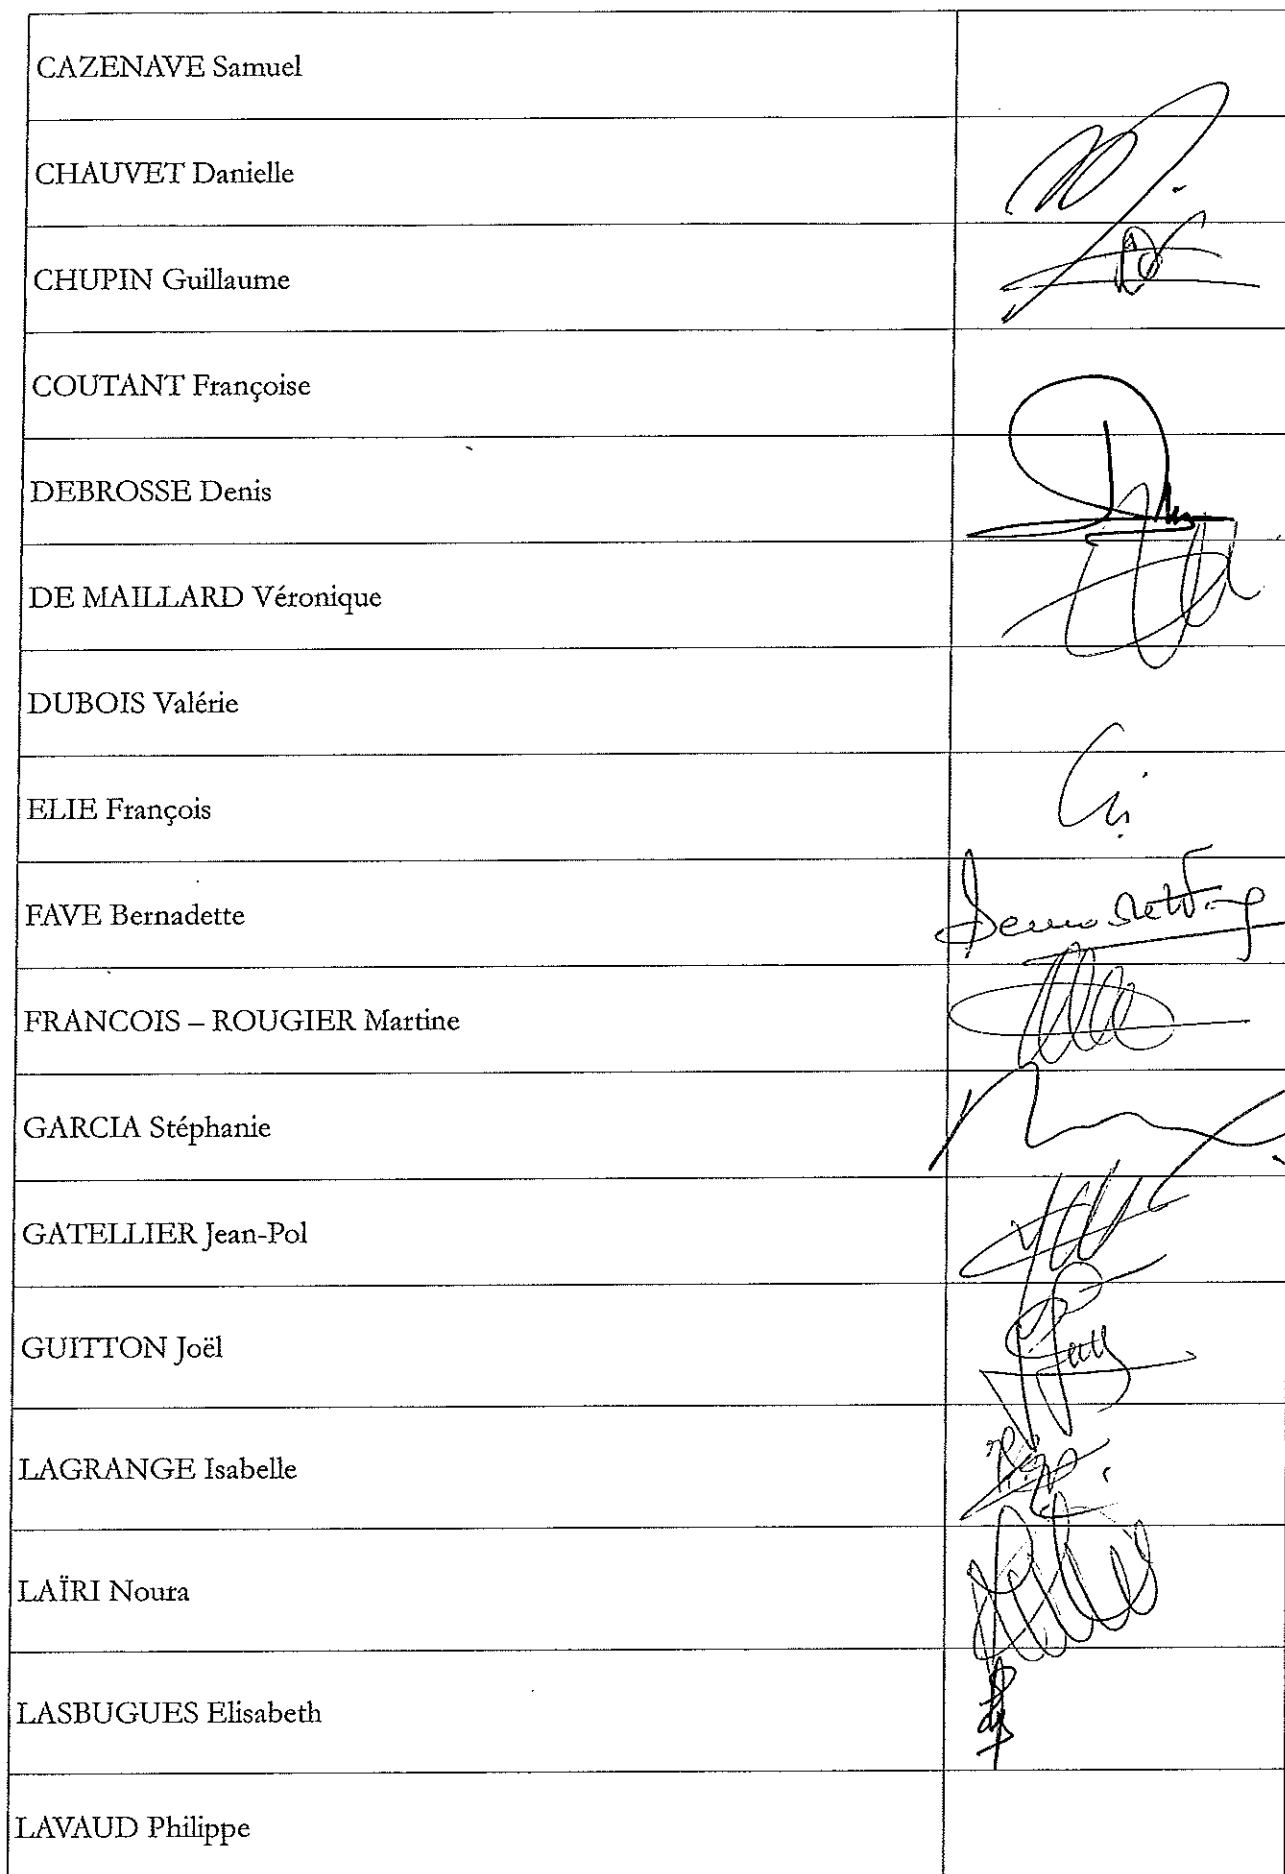 CAZENAVE Samuel
CHAUVET Danielle
CHUPIN Guillaume
COUTANT Françoise
DEBROSSE Denis
DE MAILLARD Véronique
DUBOIS Valérie
ELIE François
FAVE Bernadette
FRANCOIS – ROUGIER Martine
GARCIA Stéphanie
GATELLIER Jean-Pol
GUITTON Joël
LAGRANGE Isabelle
LAÏRI Noura
LASBUGUES Elisabeth
LAVAUD Philippe